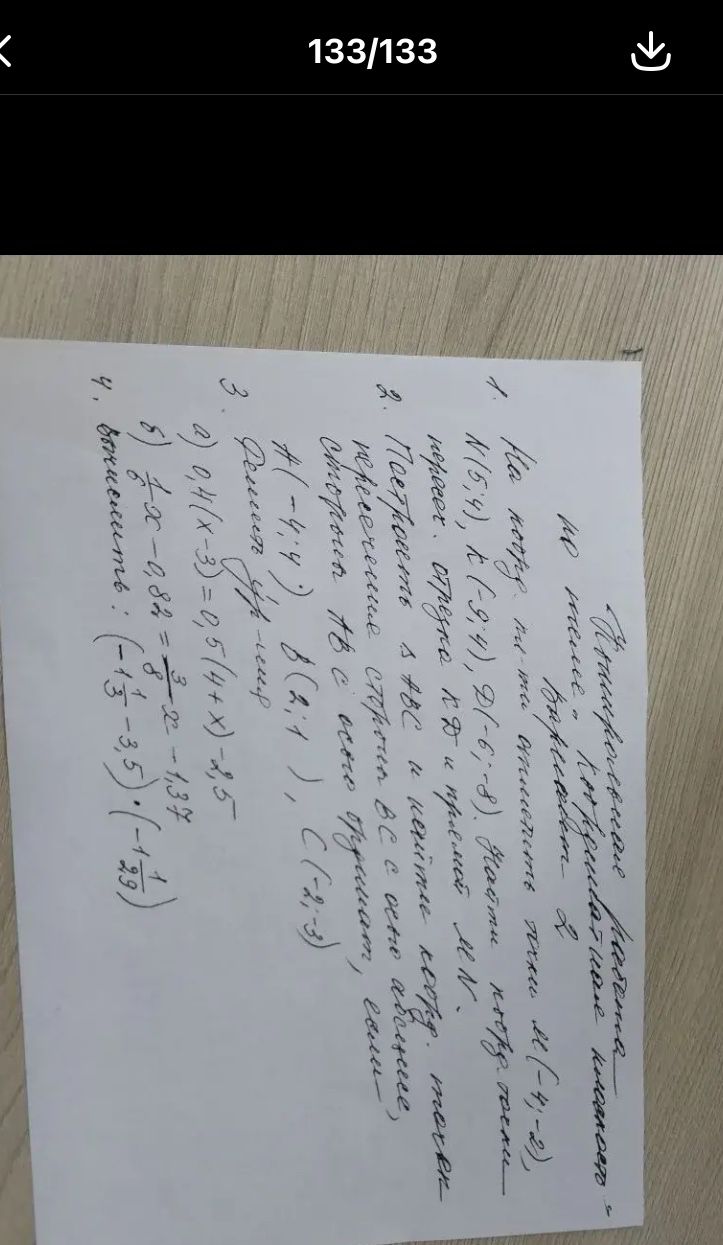 133/133
Контрольная работа
по теме „Координатная плоскость"
Вариант 2
1. На коорд. пл-ти отметить точки M(-4;-2),
N(5;4), K(-9;4), D(-6;-8). Найти коорд. точки
перес. отрезка KD и прямой MN.
2. Построить ΔABC и найти коорд. точек
пересечения стороны BC с осью абсцисс,
стороны AB с осью ординат, если
A(-4;4), B(2;1), C(-2;-3)
3. Решить ур-ния
а) 0,4(x-3)=0,5(4+x)-2,5
б) 1/6 x - 0,82 = 3/8 x - 1,37
4. Вычислить: (-1 1/3 - 3,5) · (-1 1/29)